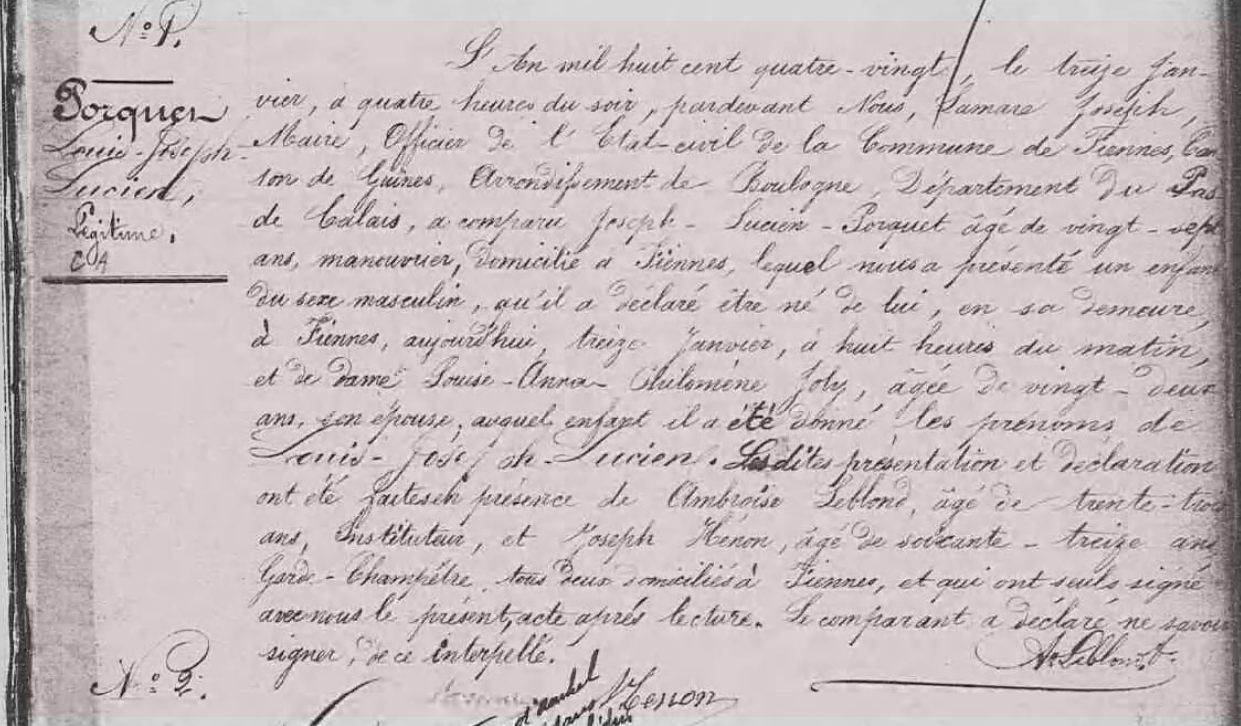 N.º 1.
Porquet
Louis-Joseph-
Lucien,
Légitime.
L'An mil huit cent quatre-vingt, le treize Jan-
vier, à quatre heures du soir, pardevant Nous, Lamare Joseph,
Maire, Officier de l'Etat-civil de la Commune de Fiennes, Can-
ton de Guînes, Arrondissement de Boulogne, Département du Pas
de Calais, a comparu Joseph-Lucien-Porquet âgé de vingt-sept
ans, manouvrier, domicilié à Fiennes, lequel nous a présenté un enfant
du sexe masculin, qu'il a déclaré être né de lui, en sa demeure,
à Fiennes, aujourd'hui, treize Janvier, à huit heures du matin,
et de dame Louise-Anna-Philomène Joly, âgée de vingt-deux
ans, son épouse, auquel enfant il a été donné les prénoms de
Louis-Joseph-Lucien. Lesdites présentation et déclaration
ont été faites en présence de Ambroise Leblond, âgé de trente-trois
ans, Instituteur, et Joseph Hénon, âgé de soixante-treize ans
Garde-Champêtre, tous deux domiciliés à Fiennes, et qui ont seuls signé
avec nous le présent acte après lecture. Le comparant a déclaré ne savoir
signer, de ce interpellé.
A. Leblond
N.º 2.
Henon